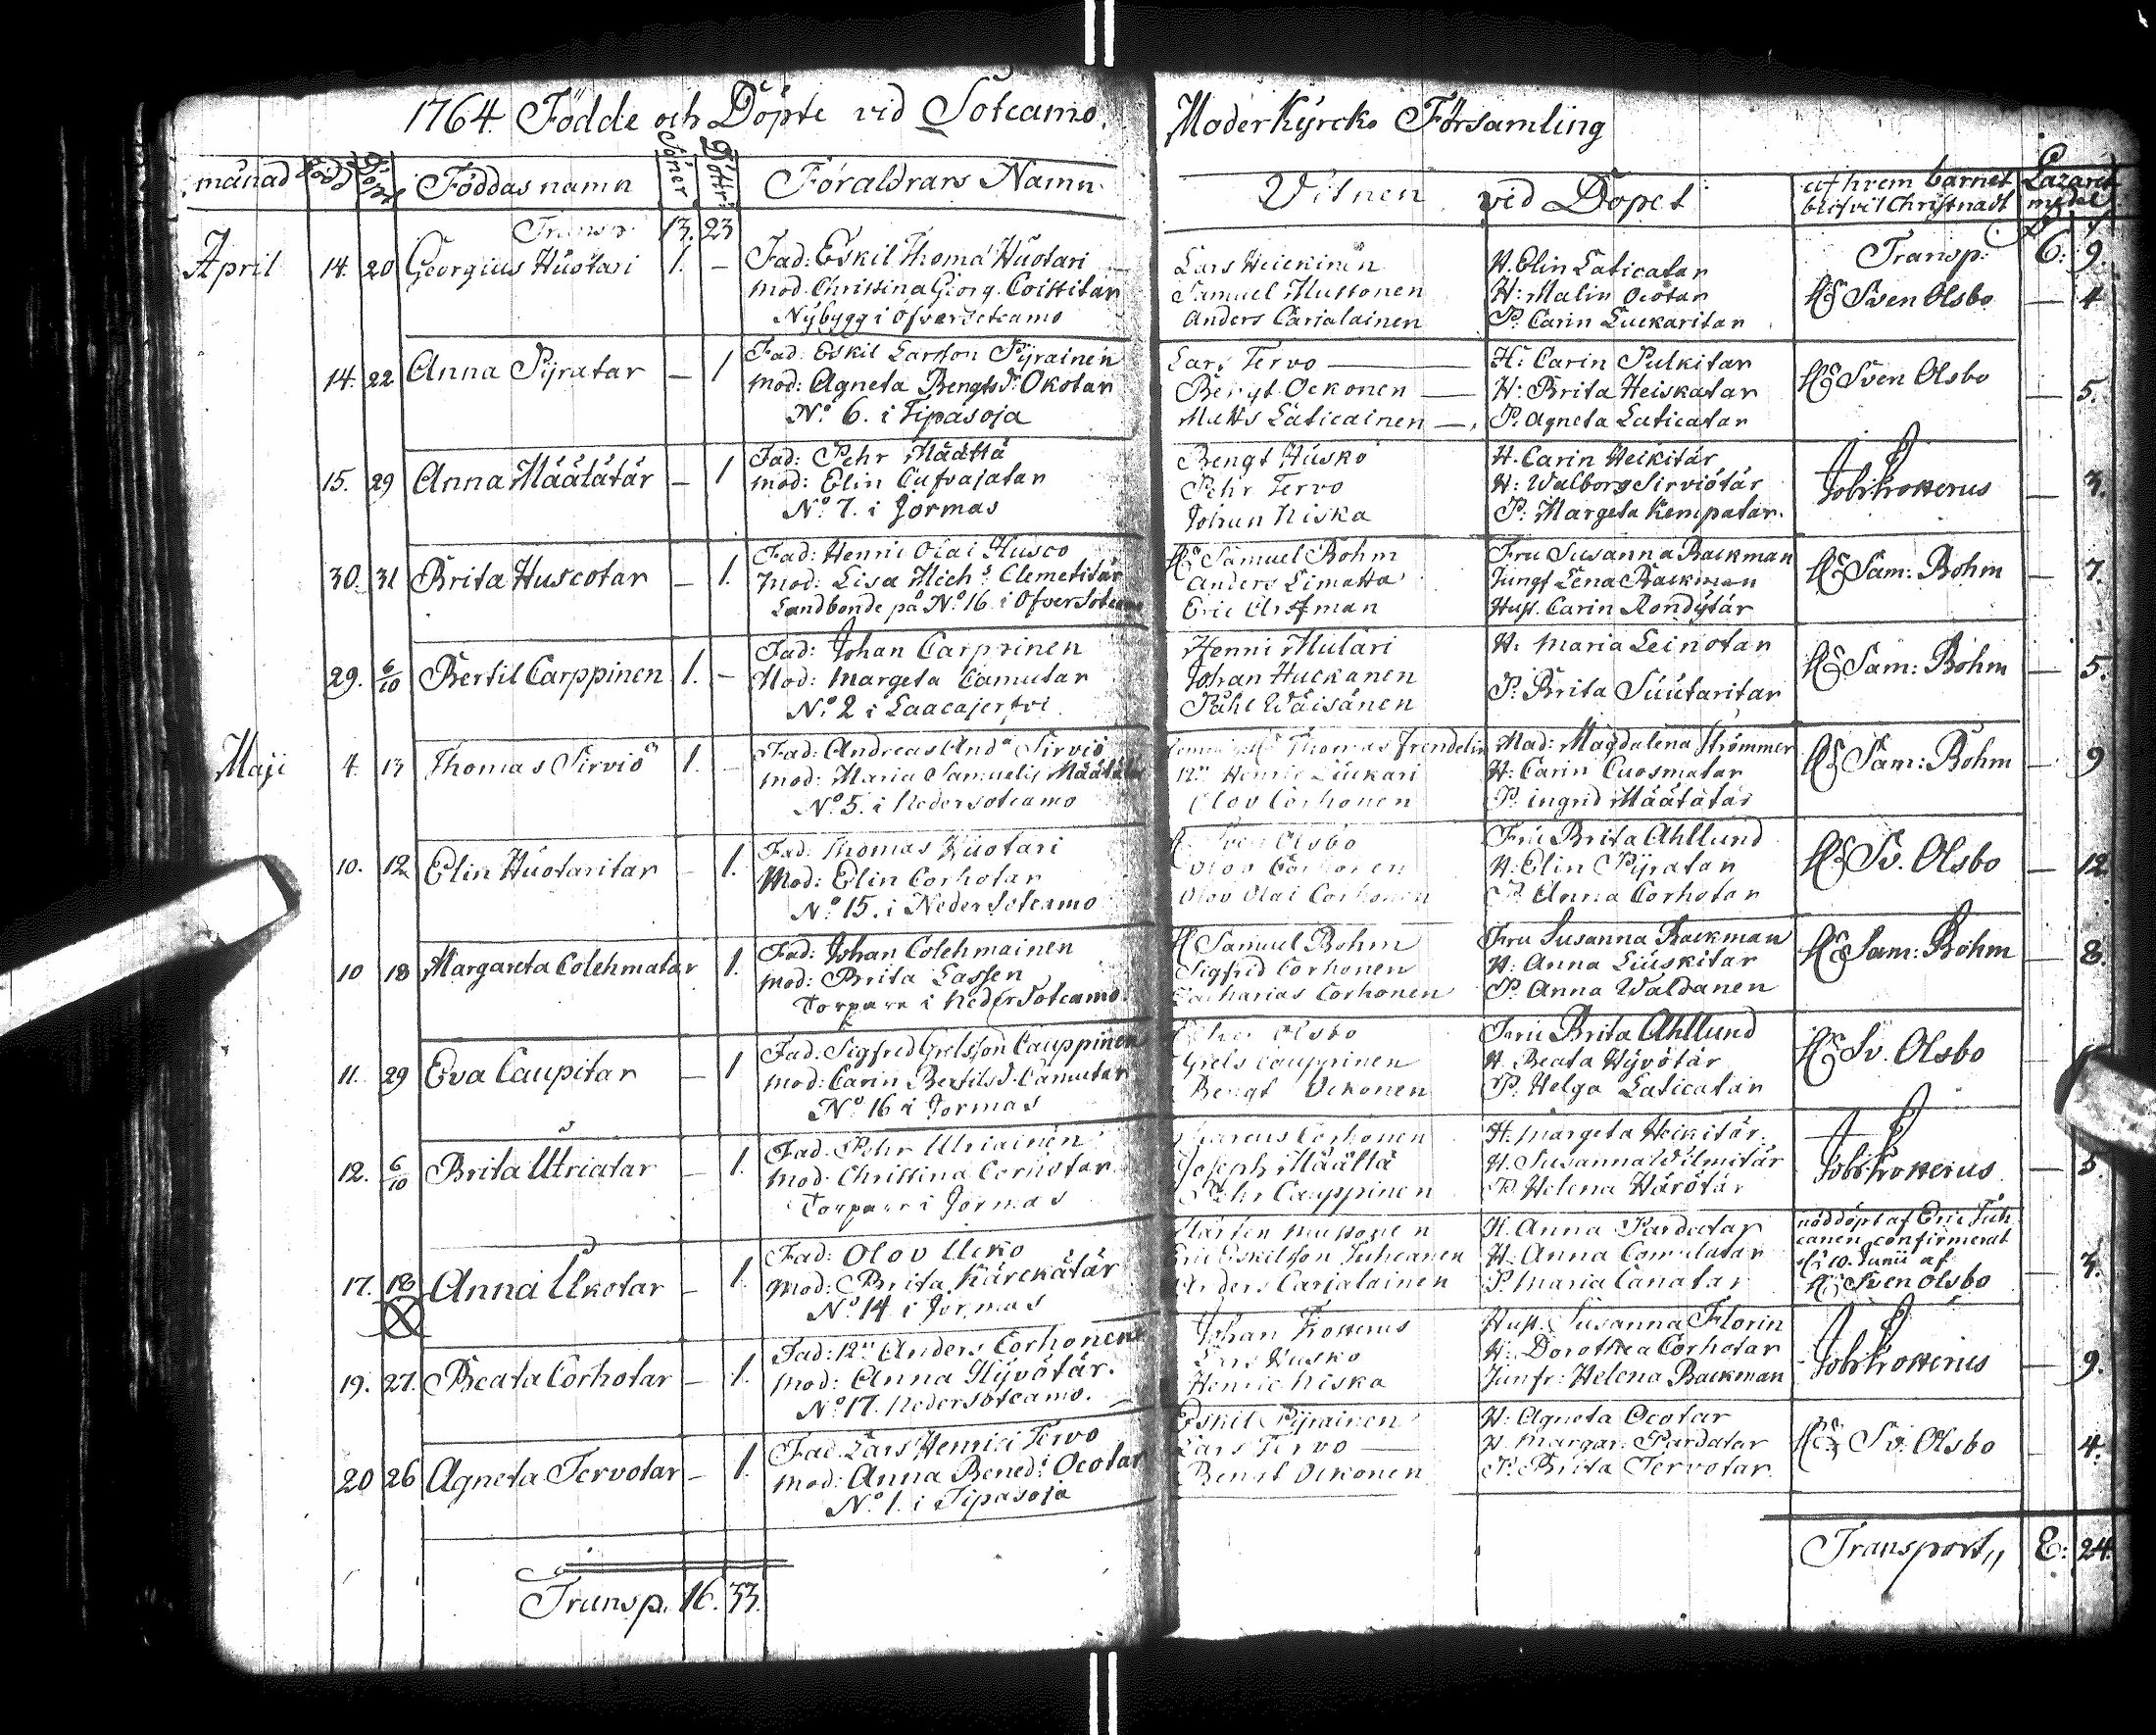 1764. Födde och Döpte vid Sotcamo. Moderkÿrcko Församling
månad Född Döpt Föddas namn Söner Döttr: Föräldrars Namn. Vitnen vid Döpet af hvem barnet Lazarets
blifvit Christnadt medel
Transp. 13. 23 Transp: 6: 9.
April 14. 20 Georgius Huotari 1. – Fad: Eskil Thomæ Huotari Lars Heickinen H. Elin Laticatar
Mod. Christina Georg. Coistitar Samuel Mustonen H: Malin Ocotar Hr Sven Olsbo — 4
Nÿbygg i Öfversotcamo Anders Carialainen P. Carin Luckaritar
14. 22 Anna Pÿratar – 1 Fad: Eskil Larsson Pÿrainen Lars Tervo H: Carin Pulkitar Hr Sven Olsbo
mod: Agneta Bengts D. Okotar Bengt Ockonen H: Brita Heiskatar — 5.
No 6. i Tipasoja Matts Laticainen P. Agneta Laticatar
15. 29 Anna Määtätär – 1 Fad: Pehr Määttä Bengt Husko H. Carin Heikitär
mod: Elin Cufvajatar Pehr Tervo H: Walborg Sirviötär — 3.
No 7. i Jormas Johan Niska P: Margeta Kempatar.
30. 31 Brita Huscotar – 1. Fad: Henric Olai Husco Hr Samuel Bohm Fru Susanna Backman Hr Sam: Bohm — 7.
Mod: Lisa Mich: Clemetitär Anders Limatta Jungf Lena Backman
Landbonde på No 16 i Öfversotcamo Eric Hust. Carin Rondÿtär
29. 6/10 Bertil Carppinen 1. – Fad: Johan Carppinen Henric Mulari H. Maria Leinotar Hr Sam: Bohm — 5.
Mod: Margeta Camutar Johan Huckanen
No 2 i Laacajerfvi Påhl Wäisänen P. Brita Suutaritar
Maji 4. 13 Thomas Sirviö 1. – Fad: Andreas And: Sirviö Thomas Frendelin Mad: Magdalena Strömmer Hr Sam: Bohm — 9
mod: Maria Samuelis Määtätär Henric Liukari H: Carin Cuosmatar
No 5. i Nedersotcamo Olov Corhonen P. Ingrid Määtätär
10. 12 Elin Huotaritar – 1. Fad: Thomas Huotari Sven Olsbo Fru Brita Ahllund Hr Sv. Olsbo — 12
Mod: Elin Corhotar Olov Corhonen H. Elin Pÿratar
No 15. i Nedersotcamo Olov Olai Corhonen P. Anna Corhotar
10 18 Margareta Colehmatar 1. Fad: Johan Colehmainen Hr Samuel Bohm Fru Susanna Backman Hr Sam: Bohm — 8.
mod: Brita Lassen Sigfrid Corhonen H: Anna Liuskitar
Torpare i Nedersotcamo Zacharias Corhonen P. Anna Waldanen
11. 29 Eva Caupitar – 1 Fad: Sigfred Grelsson Cauppinen Olsbo Fru Brita Ahllund Hr Sv. Olsbo
mod: Carin Bertils D. Camutar Grels Cauppinen H. Beata Hÿvötär
No 16 i Jormas Bengt Ockonen P. Helga Laticatar
12. 6/10 Brita Utriatar – 1. Fad. Pehr Utriainen Marcus Corhonen H. Margeta Heikitär
Mod. Christina Cornotar Joseph Määttä H. Susanna Wilmitär — 5
Torpare i Jormas Pehr Cauppinen P. Helena Härötär
17. 18 Anna Ukotar – 1. Fad: Olov Ucko Mårten Mustonen H. Anna Pardatar nöddöpt af Eric Tuh
Mod: Brita Kärckätär Eric Eskilsson Tuhcanen H: Anna Comulatar canen confirmerat
No 14 i Jormas Anders Carialainen P. Maria Canatar d: 10. Junii af — 3.
Hr Sven Olsbo
19. 27. Beata Corhotar – 1. Fad: 12n Anders Corhonen Johan Hust. Susanna Florin
mod: Anna Hÿvötär. Lars Husko H: Dorothea Corhotar — 9.
No 17. Nedersotcamo. Henric Niska Junfr: Helena Backman
20 26 Agneta Tervotar – 1. Fad. Lars Henrici Tervo Eskil Pÿrainen H: Agneta Ocotar
mod: Anna Bened: Ocotar Lars Tervo H. Margar: Pardatar Hr Sv. Olsbo — 4.
No 1. i Tipasoja Bengt Ockonen P. Brita Tervotar
Transp. 16. 33. Transport,, 8: 24.